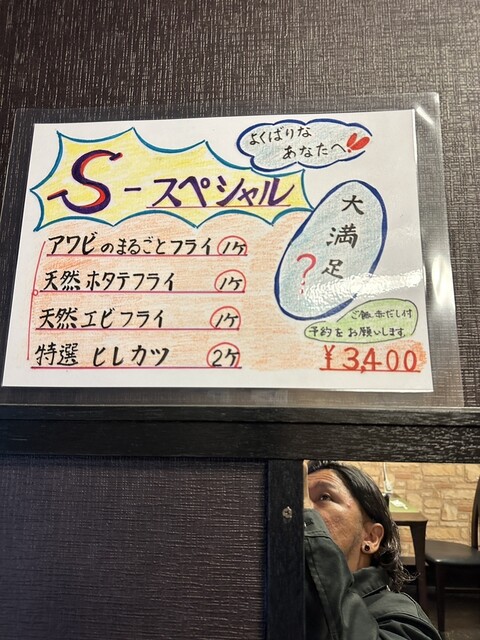 よくばりな
あなたへ
S-スペシャル
大満足?
アワビのまるごとフライ 1ケ
天然ホタテフライ 1ケ
天然エビフライ 1ケ
特選 ヒレカツ 2ケ
ご飯、赤だし付
予約をお願いします
¥3,400